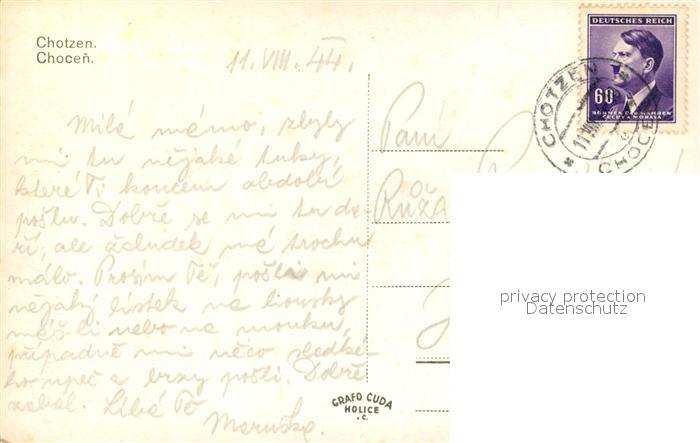 Chotzen.
Choceň.
11. VIII. 44.
Milá mámo, zbyly
mi tu nějaké tuky,
které Ti koncem období
pošlu. Dobře se mi tu da-
ří, ale žaludek má trochu
málo. Prosím Tě, pošli mi
nějaký lístek na housky
li nebo na mouku,
případně mi něco sladké-
ho upeč a brzy pošli. Dobře
zabal. Líbá Tě
Maruška.
Paní
Růž
DEUTSCHES REICH
60
BÖHMEN UND MÄHREN
ČECHY A MORAVA
CHOTZEN
CHOCEŇ
privacy protection
Datenschutz
GRAFO ČUDA
HOLICE